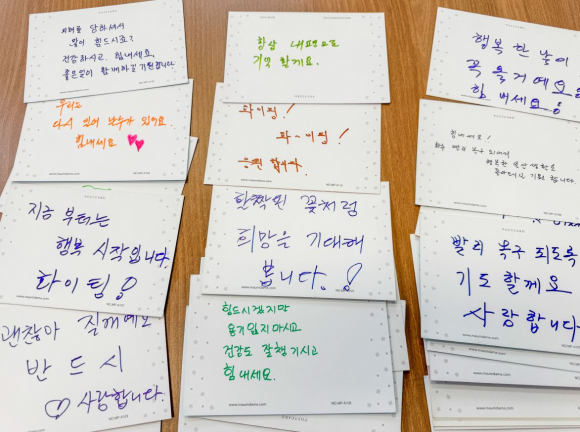 피해를 당하셔서
많이 힘드시죠?
건강하시고, 힘내세요,
좋은일이 함께하길 기원합니다.
우리는
다시 일어 날수가 있어요
힘내세요
지금 부터는
행복 시작입니다.
화이팅!
www.maumdama.com
NC-MP-4105
괜찮아 질거예요
반드시
사랑합니다.
항상 내편으로
기억 할게요.
www.maumdama.com
NC-MP-4105
화이팅!
화~이팅!
응원 합니다.
활짝핀 꽃처럼
희망을 기대해
봅니다.!
힘드시겠지만
용기잃지 마시고
건강도 잘챙기시고
힘내세요.
www.maumdama.com
NC-MP-4105
행복 한 날이
꼭 올거예요
힘 내세요!
힘내세요!
하루 빨리 복구 되어서
행복한 일상생활로
돌아가길 기원 합니다.
빨리 복구 되도록
기도 할께요
사랑합니다.
www.maumdama.com
NC-MP-4105